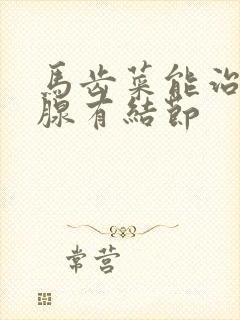 馬齿菜能治
腺有結節
常营